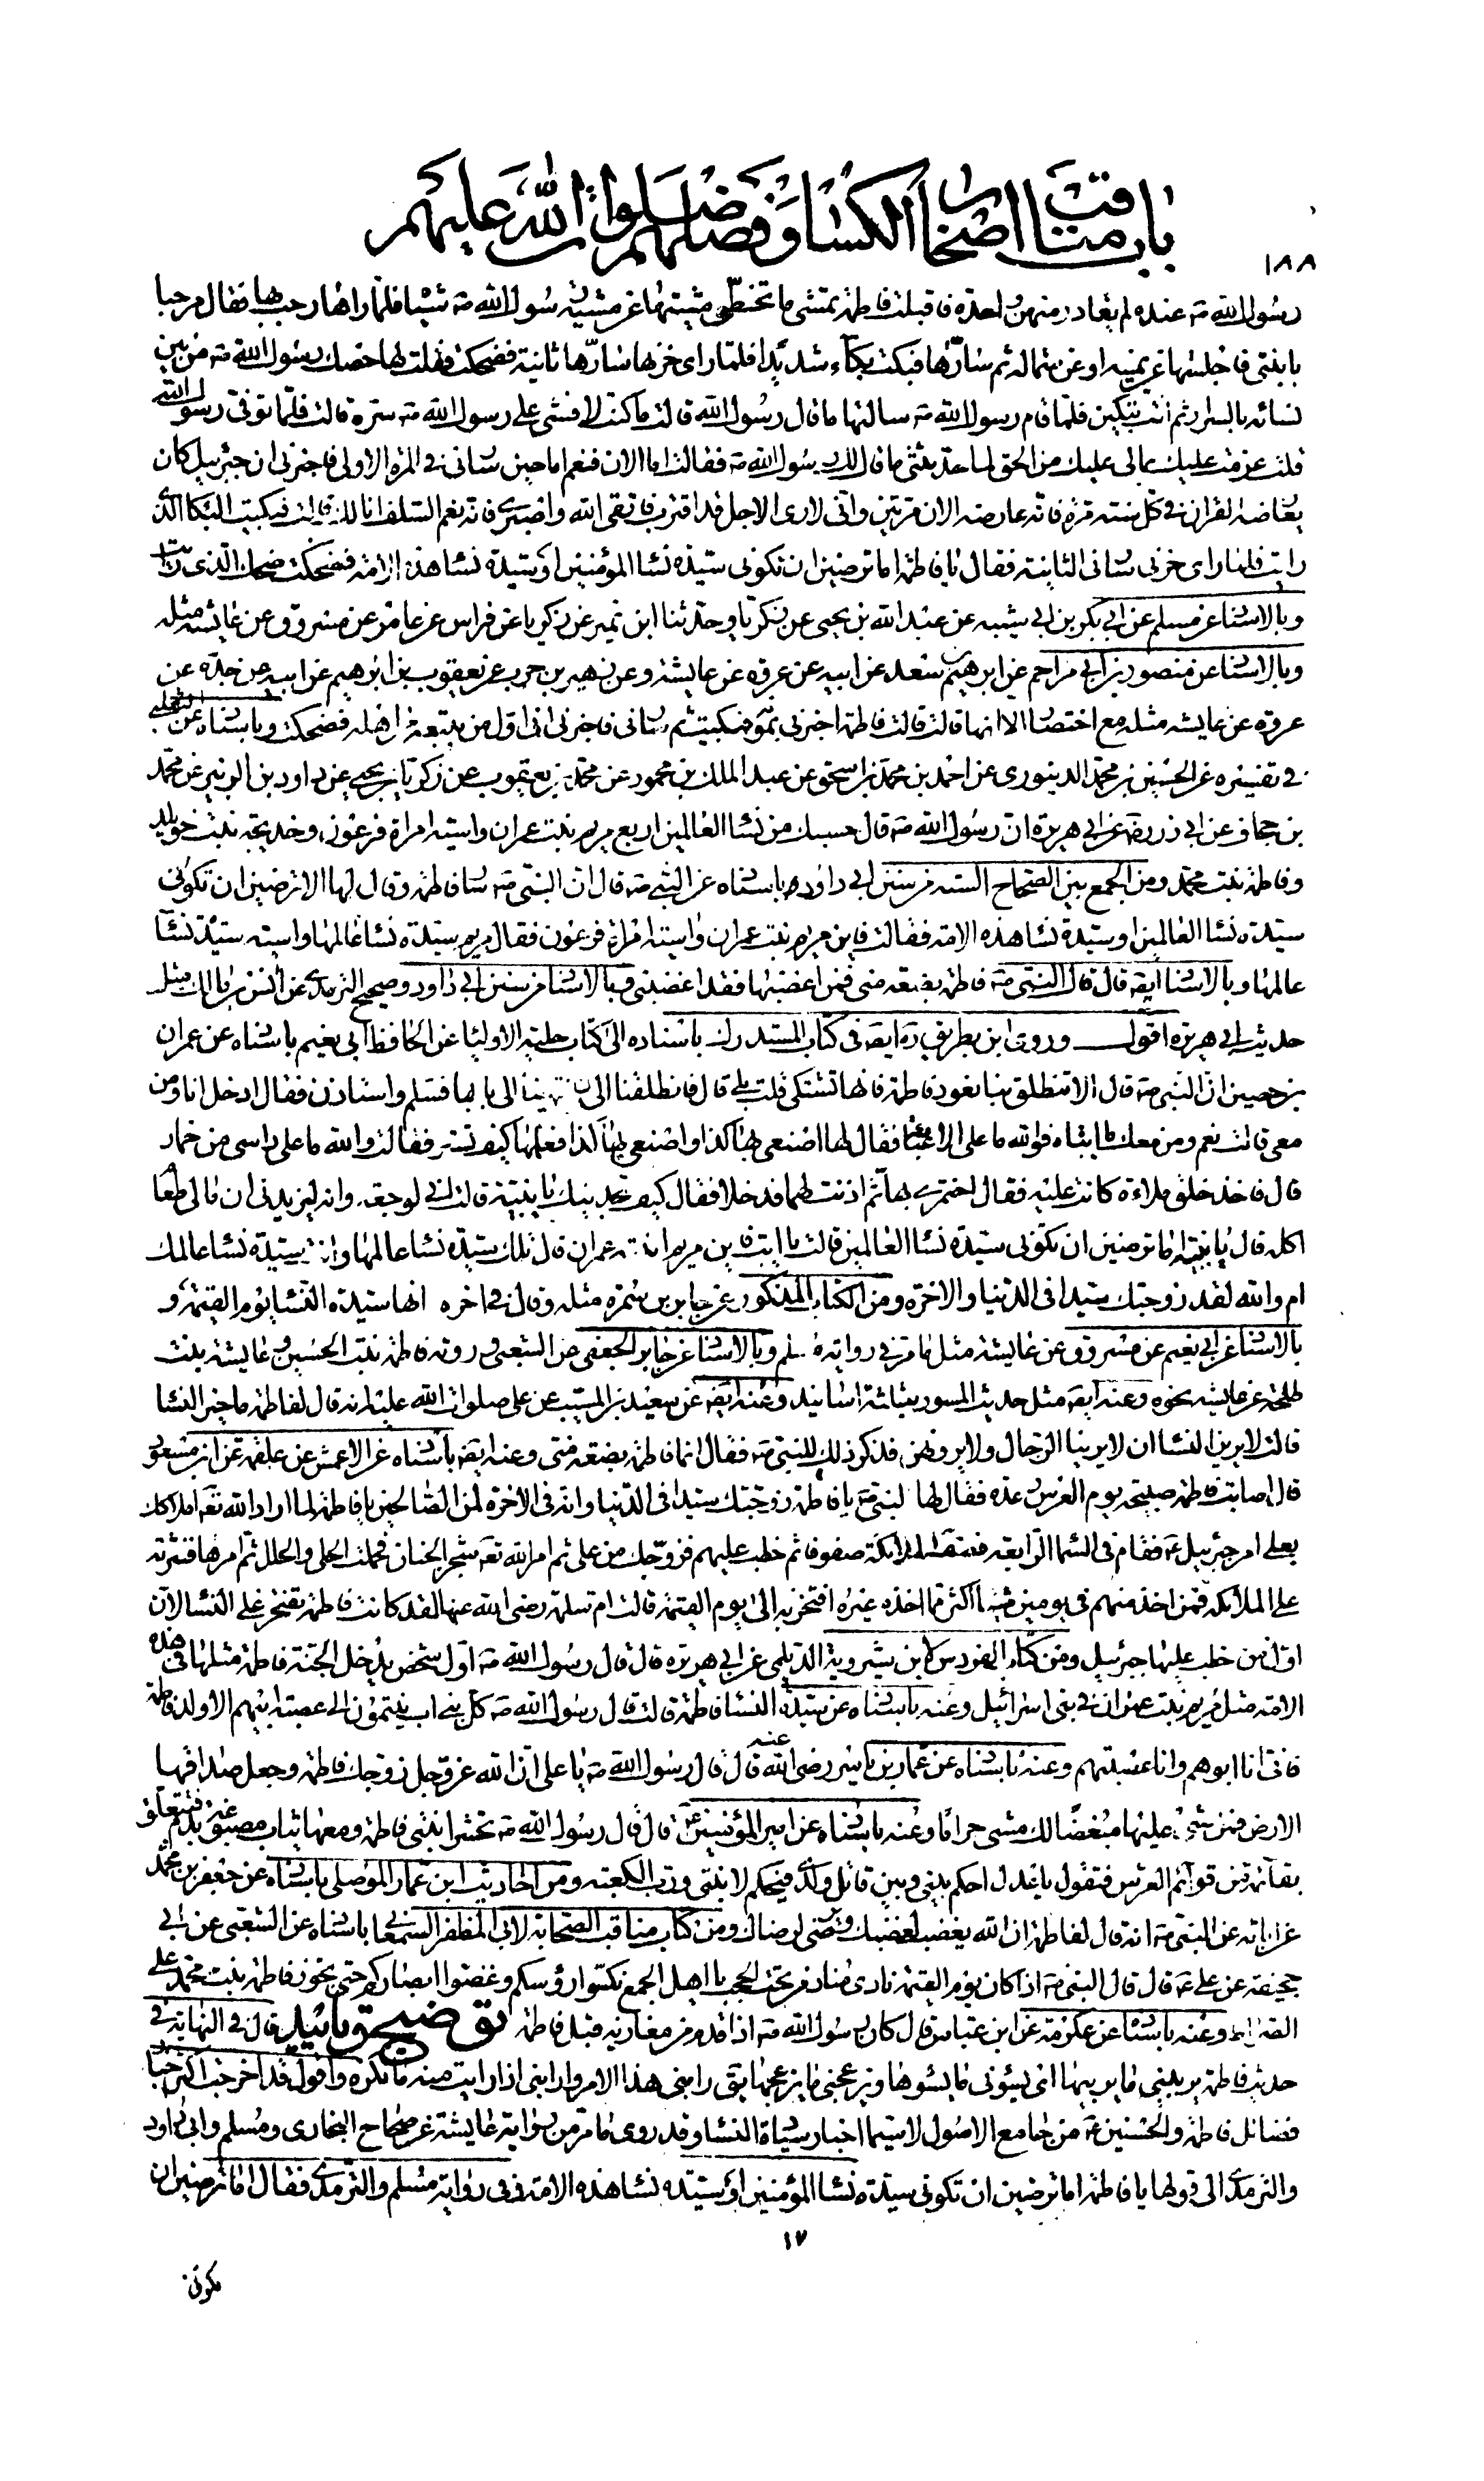 باب مناقب اصحاب الكساء و فضلهم صلوات الله عليهم
١٨٨
رسول الله ص عنده لم يغادر منهن واحدة فاقبلت فاطمة تمشى ما تخطى مشيتها عن مشية رسول الله ص شيئا فلما راها رحب بها فقال مرحبا
بابنتى فاجلسها عن يمينه او عن شماله ثم سارها فبكت بكاء شديدا فلما راى حزنها سارها ثانية فضحكت فقلت لها خصك رسول الله ص من بين
نسائه بالسرار ثم انت تبكين فلما قام رسول الله ص سالتها ما قال رسول الله قالت ما كنت لافشى على رسول الله ص سره قالت فلما توفى رسول الله
قلت عزمت عليك بمالى عليك من الحق لما حدثتنى ما قال لك رسول الله ص فقالت اما الان فنعم اما حين سارنى فى المرة الاولى فاخبرنى ان جبرئيل كان
يعارضه القران فى كل سنة مرة فانه عارضه الان مرتين وانى لارى الاجل قد اقترب فاتقى الله واصبرى فانه نعم السلف انا لك قالت فبكيت البكا الذى
رايت فلما راى حزنى سارنى الثانية فقال يا فاطمة اما ترضين ان تكونى سيدة نسا المؤمنين او سيدة نسا هذه الامة فضحكت ضحكى الذى رايت
وبالاسنا عن مسلم عن ابى بكر بن ابى شيبه عن عبد الله بن يحيى عن زكريا وحدثنا ابن نمير عن زكريا عن فراس عن عامر عن مسروق عن عايشه مثله
وبالاسنا عن منصور بن ابى مزاحم عن ابرهيم بن سعد عن ابيه عن عروه عن عايشة وعن زهير بن حرب عن يعقوب بن ابرهيم عن ابيه عن جده عن
عروة عن عايشه مثله مع اختصا الا انها قالت قالت فاطمة اخبرنى بموته فبكيت ثم سارنى فاخبرنى انى اول من يتبعه من اهله فضحكت وباسناه عن الثعلبى
فى تفسيره عن الحسين بن محمد الدينورى عن احمد بن محمد بن اسحق عن عبد الملك بن محمود عن محمد بن يعقوب عن زكريا بن يحيى عن داود بن الزبير عن محمد
بن جحاف عن ابى زرعة عن ابى هريرة ان رسول الله ص قال حسبك من نسا العالمين اربع مريم بنت عمران واسيه امراة فرعون وخديجة بنت خويلد
وفاطمة بنت محمد ومن الجمع بين الصحاح الستة من سنن ابى داود باسناه عن النبى ص قال ان النبى ص سار فاطمة وقال لها الا ترضين ان تكونى
سيدة نسا العالمين او سيدة نسا هذه الامة فقالت فاين مريم بنت عمران واسيه امراة فرعون فقال مريم سيدة نسا عالمها واسيه سيدة نسا
عالمها وبالاسنا ايض قال قال النبى ص فاطمة بضعة منى فمن اغضبها فقد اغضبنى وبالاسنا من سنن ابى داود وصحيح الترمذى عن انس بن مالك مثل
حديث ابى هريرة اقول وروى ابن بطريق ره ايض فى كتاب المستدرك باسناده الى كتاب حلية الاوليا عن الحافظ ابى نعيم باسناه عن عمران
بن حصين ان النبى ص قال الا تنطلق بنا نعود فاطمة فانها تشتكى قلت بلى قال فانطلقنا الى ان انتهينا الى بابها فسلم واستاذن فقال ادخل انا ومن
معى قالت نعم ومن معك يا ابتاه فوالله ما على الا عبا فقال لها اصنعى بها كذا واصنعى بها كذا فعلمها كيف تستتر فقالت والله ما على راسى من خمار
قال فاخذ خلق ملاءة كانت عليه فقال اختمرى بها ثم اذنت لهما فدخلا فقال كيف تجدينك يا بنية قالت انى لوجعة وانه ليزيدنى ان مالى طعا
اكله قال يا بنية اما ترضين ان تكونى سيدة نسا العالمين قالت يا ابت فاين مريم ابنة عمران قال تلك سيدة نسا عالمها وانت سيدة نسا عالمك
ام والله لقد زوجتك سيدا فى الدنيا والاخرة ومن الكتاب المذكور عن جابر بن سمرة مثله وقال فى اخره انها سيدة النسا يوم القيمة و
بالاسنا عن ابى نعيم عن مسروق عن عايشة مثل ما مر فى رواية مسلم وبالاسنا عن جابر الجعفى عن الشعبى وروته فاطمة بنت الحسين وعايشة بنت
طلحة عن عايشه نحوه وعنه ايض مثل حديث المسور بثلثة اسانيد وعنه ايض عن سعيد بن المسيب عن على صلوات الله عليه انه قال لفاطمة ما خير النسا
قالت لا يرين الرجال ولا يرونهن فذكر ذلك للنبى ص فقال انما فاطمة بضعة منى وعنه ايض باسناه عن الاعمش عن علقمة عن ابن مسعود
قال اصابت فاطمة صبيحة يوم العرس رعدة فقال لها النبى ص يا فاطمة زوجتك سيدا فى الدنيا وانه فى الاخرة لمن الصالحين يا فاطمة لما اراد الله تعه املاكك
بعلى امر جبرئيل ع فقام فى السما الرابعة فصف الملائكة صفوفا ثم خطب عليهم فزوجك من على ثم امر الله تعه شجر الجنان فحملت الحلى والحلل ثم امرها فنثرته
على الملائكة فمن اخذ منهم فى يومئذ شيئا اكثر مما اخذه غيره افتخر به الى يوم القيمة قالت ام سلمة رضى الله عنها لقد كانت فاطمة تفتخر على النسا لان
اول من خطب عليها جبرئيل ومن كتاب الفردوس لابن شيروية الديلمى عن ابى هريرة قال قال رسول الله ص اول شخص يدخل الجنة فاطمة مثلها فى هذه
الامة مثل مريم بنت عمران فى بنى اسرائيل وعنه باسناه عن سيدة النسا فاطمة قالت قال رسول الله ص كل بنى اب ينتمون الى عصبة ابيهم الا ولد فاطمة
فانى انا ابوهم وانا عصبتهم وعنه باسناه عن عمار بن ياسر رضى الله عنه قال قال رسول الله ص يا على ان الله عز وجل زوجك فاطمة وجعل صداقها
الارض فمن مشى عليها مبغضا لك مشى حراما وعنه باسناه عن امير المؤمنين ع قال قال رسول الله ص تحشر ابنتى فاطمة ومعها ثياب مصبوغة بدم فتتعلق
بقائمة من قوائم العرش فتقول يا عدل احكم بينى وبين قاتل ولدى فيحكم لابنتى ورب الكعبة ومن احاديث ابن عمار الموصلى باسناه عن جعفر بن محمد
عن ابائه عن النبى ص انه قال لفاطمة ان الله يغضب لغضبك ويرضى لرضاك ومن كتاب مناقب الصحابة لابى المظفر السمعانى باسناه عن الشعبى عن ابى
جحيفة عن على ع قال قال النبى ص اذا كان يوم القيمة نادى مناد من تحت الحجب يا اهل الجمع نكسوا رؤسكم وغضوا ابصاركم حتى تجوز فاطمة بنت محمد على
الصراط وعنه باسنا عن عكرمة عن ابن عباس قال كان رسول الله ص اذا قدم من مغازيه قبل فاطمة توضيح وتاييد قال فى النهاية فى
حديث فاطمة يريبنى ما يريبها اى يسوئنى ما يسوءها ويزعجنى ما يزعجها يق رابنى هذا الامر وارابنى اذا رايت منه ما تكره واقول قد اخرجت اكثر اخبا
فضائل فاطمة والحسنين ع من جامع الاصول لا سيما اخبار سيادة النسا وقد روى ما مر من رواية عايشة عن صحاح البخارى ومسلم وابى داود
والترمذى الى قولها يا فاطمة اما ترضين ان تكونى سيدة نسا المؤمنين او سيدة نسا هذه الامة وفى رواية مسلم والترمذى فقال اما ترضين ان
١٧
تكونى